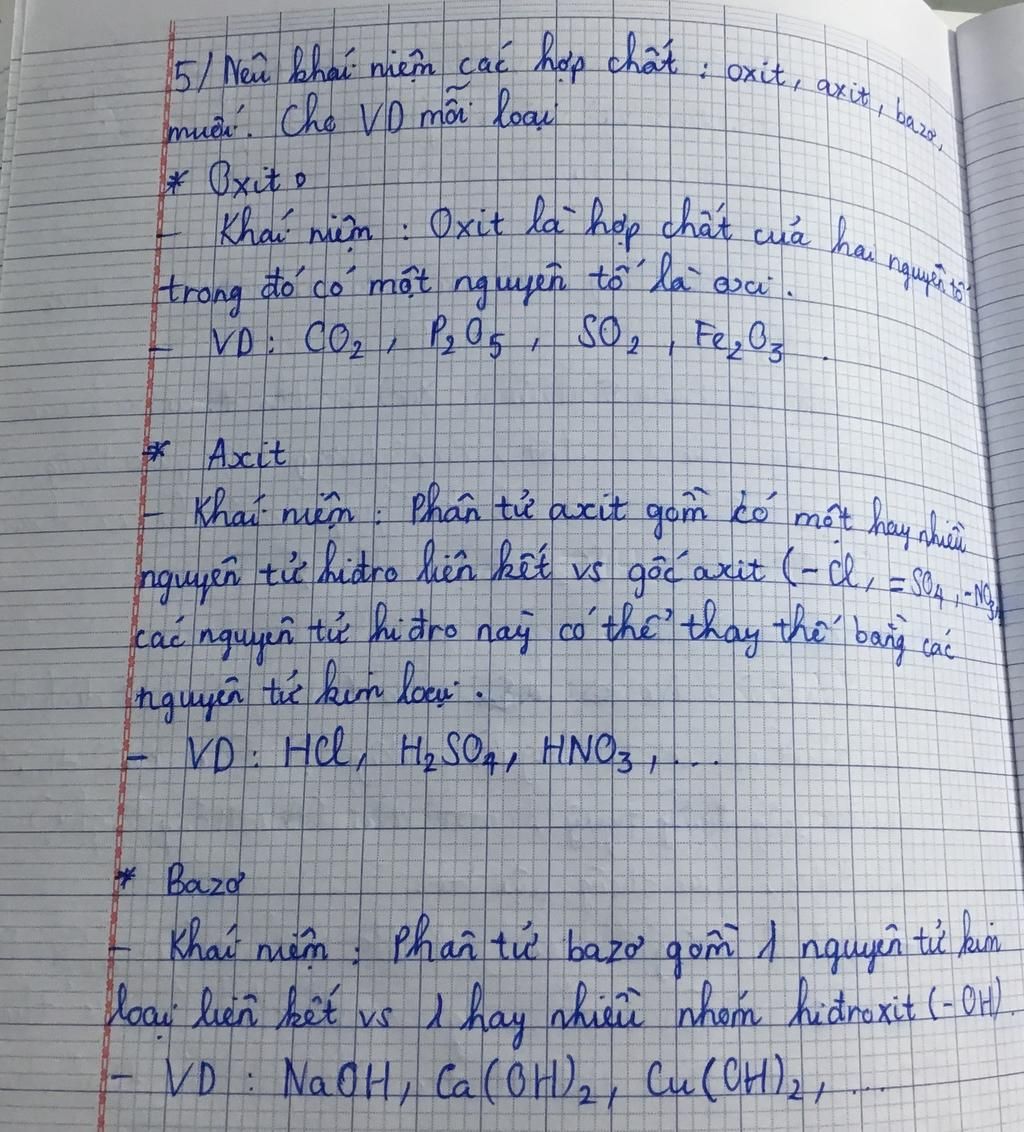 5/ Nêu khái niệm các hợp chất : oxit, axit, bazơ,
muối. Cho VD mỗi loại
* Oxit :
- Khái niệm : Oxit là hợp chất của hai nguyên tố
trong đó có một nguyên tố là oxi.
- VD : CO₂, P₂O₅, SO₂, Fe₂O₃.
* Axit
- Khái niệm : Phân tử axit gồm có một hay nhiều
nguyên tử hiđro liên kết vs gốc axit (-Cl, =SO₄, -NO₃),
các nguyên tử hiđro này có thể thay thế bằng các
nguyên tử kim loại.
- VD : HCl, H₂SO₄, HNO₃, ...
* Bazơ
- Khái niệm : Phân tử bazơ gồm 1 nguyên tử kim
loại liên kết vs 1 hay nhiều nhóm hiđroxit (-OH).
- VD : NaOH, Ca(OH)₂, Cu(OH)₂, ...